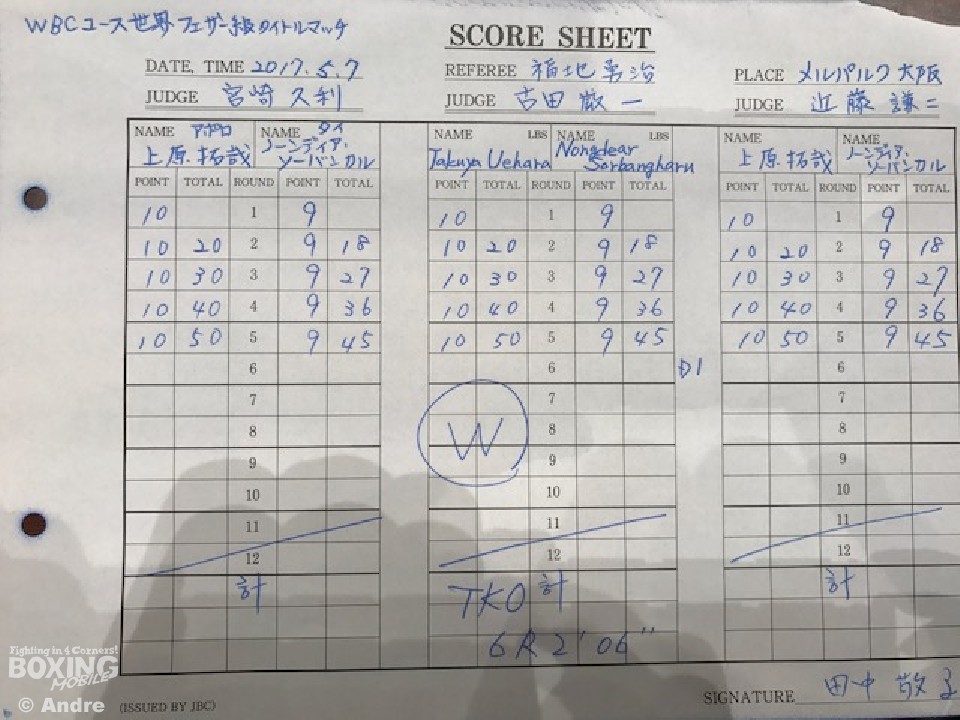 WBCユース世界フェザー級タイトルマッチ
SCORE SHEET
DATE, TIME 2017.5.7
REFEREE 福地勇治
PLACE メルパルク大阪
JUDGE 宮崎久利
JUDGE 古田厳一
JUDGE 近藤謙二
NAME アポロ NAME タイ
上原拓哉 ノーンディア・ソーバンカル
NAME LBS NAME LBS
Takuya Uehara Nongdear Sorbangharu
NAME NAME
上原拓哉 ノーンディア・ソーバンカル
POINT TOTAL ROUND POINT TOTAL POINT TOTAL ROUND POINT TOTAL POINT TOTAL ROUND POINT TOTAL
10 1 9 10 1 9 10 1 9
10 20 2 9 18 10 20 2 9 18 10 20 2 9 18
10 30 3 9 27 10 30 3 9 27 10 30 3 9 27
10 40 4 9 36 10 40 4 9 36 10 40 4 9 36
10 50 5 9 45 10 50 5 9 45 10 50 5 9 45
6 6 D1 6
7 7 7
8 W 8 8
9 9 9
10 10 10
11 11 11
12 12 12
計 TKO 計 計
6R 2'06"
SIGNATURE 田中敬
(ISSUED BY JBC)
Fighting in 4 Corners!
BOXING
MOBILE
© Andre